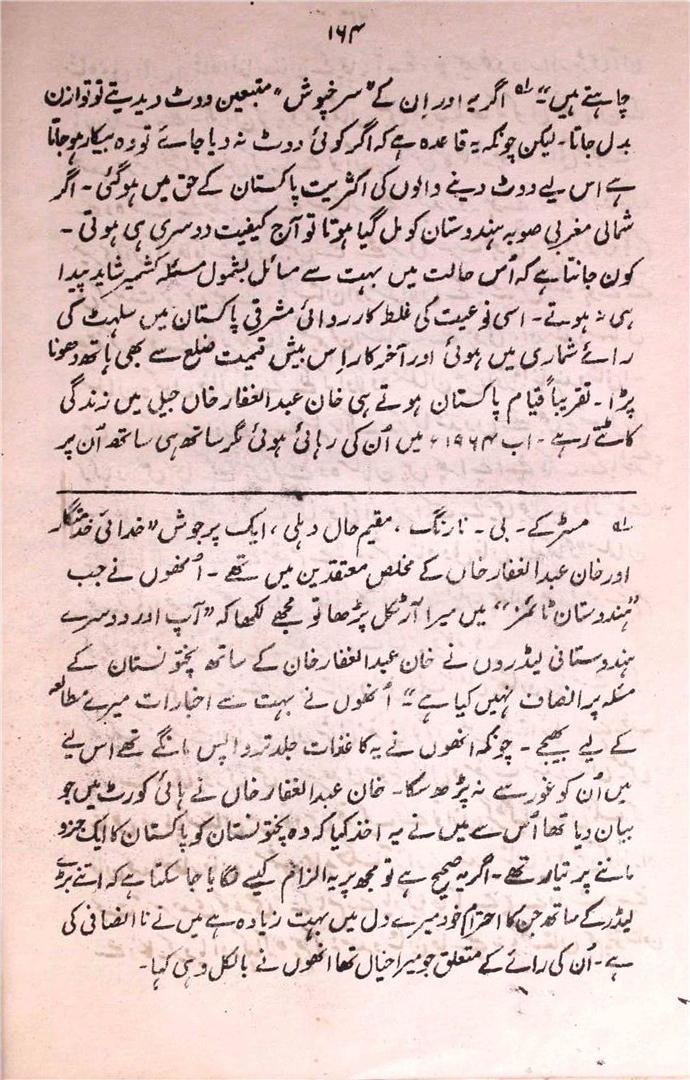 ۱۶۴
چاہتے ہیں"۔ ؎۱ اگر یہ اور اِن کے "سرخپوش" متبعین ووٹ دیدیتے تو توازن
بدل جاتا۔ لیکن چونکہ یہ قاعدہ ہے کہ اگر کوئی ووٹ نہ دیا جائے تو وہ بیکار ہو جاتا
ہے اس لیے ووٹ دینے والوں کی اکثریت پاکستان کے حق میں ہو گئی۔ اگر
شمالی مغربی صوبہ ہندوستان کو مل گیا ہوتا تو آج کیفیت دوسری ہی ہوتی۔
کون جانتا ہے کہ اُس حالت میں بہت سے مسائل بشمول مسئلہ کشمیر شاید پیدا
ہی نہ ہوتے۔ اسی نوعیت کی غلط کارروائی مشرقی پاکستان میں سلہٹ کی
رائے شماری میں ہوئی اور آخر کار اِس بیش قیمت ضلع سے بھی ہاتھ دھونا
پڑا۔ تقریباً قیام پاکستان ہوتے ہی خان عبدالغفار خاں جیل میں زندگی
کاٹتے رہے۔ اب ۱۹۶۴ء میں اُن کی رہائی ہوئی مگر ساتھ ہی ساتھ اُن پر
؎۱ مسٹر کے۔ بی۔ نارنگ، مقیم حال دہلی، ایک پرجوش "خدائی خدمتگار
اور خان عبدالغفار خاں کے مخلص معتقدین میں تھے۔ اُنھوں نے جب
"ہندوستان ٹائمز" میں میرا آرٹکل پڑھا تو مجھے لکھا کہ "آپ اور دوسرے
ہندوستانی لیڈروں نے خان عبدالغفار خان کے ساتھ پختونستان کے
مسئلہ پر انصاف نہیں کیا ہے"۔ اُنھوں نے بہت سے اخبارات میرے مطالعہ
کے لیے بھیجے۔ چونکہ انھوں نے یہ کاغذات جلد تر واپس مانگے تھے اس لیے
میں اُن کو غور سے نہ پڑھ سکا۔ خان عبدالغفار خاں نے ہائی کورٹ میں جو
بیان دیا تھا اُس سے میں نے یہ اخذ کیا کہ وہ پختونستان کو پاکستان کا ایک جزو
ماننے پر تیار تھے۔ اگر یہ صحیح ہے تو مجھ پر یہ الزام کیسے لگایا جا سکتا ہے کہ اتنے بڑے
لیڈر کے ساتھ جن کا احترام خود میرے دل میں بہت زیادہ ہے میں نے ناانصافی کی
ہے۔ اُن کی رائے کے متعلق جو میرا خیال تھا انھوں نے بالکل وہی کہا۔